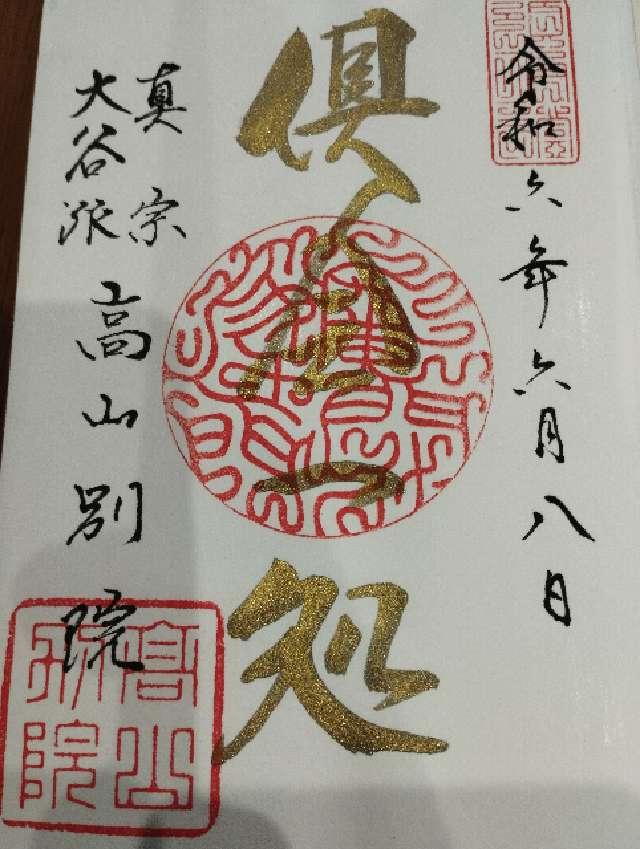 令和六年六月八日
倶会一処
真宗
大谷派
高山別院
高山
別院